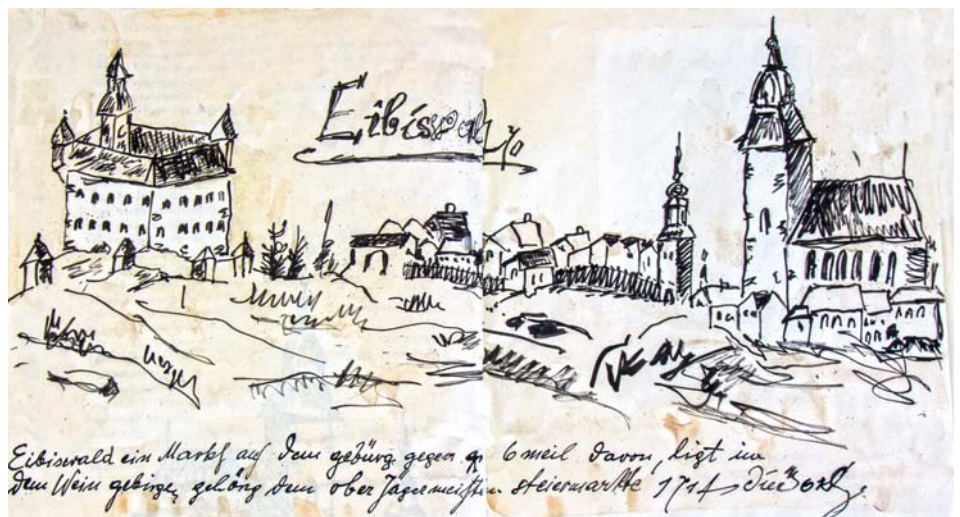 Eibiswald
Eibiswald ein Markt auf dem gebürg gegen 6 meil davon, ligt im
dem Wein gebirge, gehörg dem ober Jägermeister steiermarkte 1714